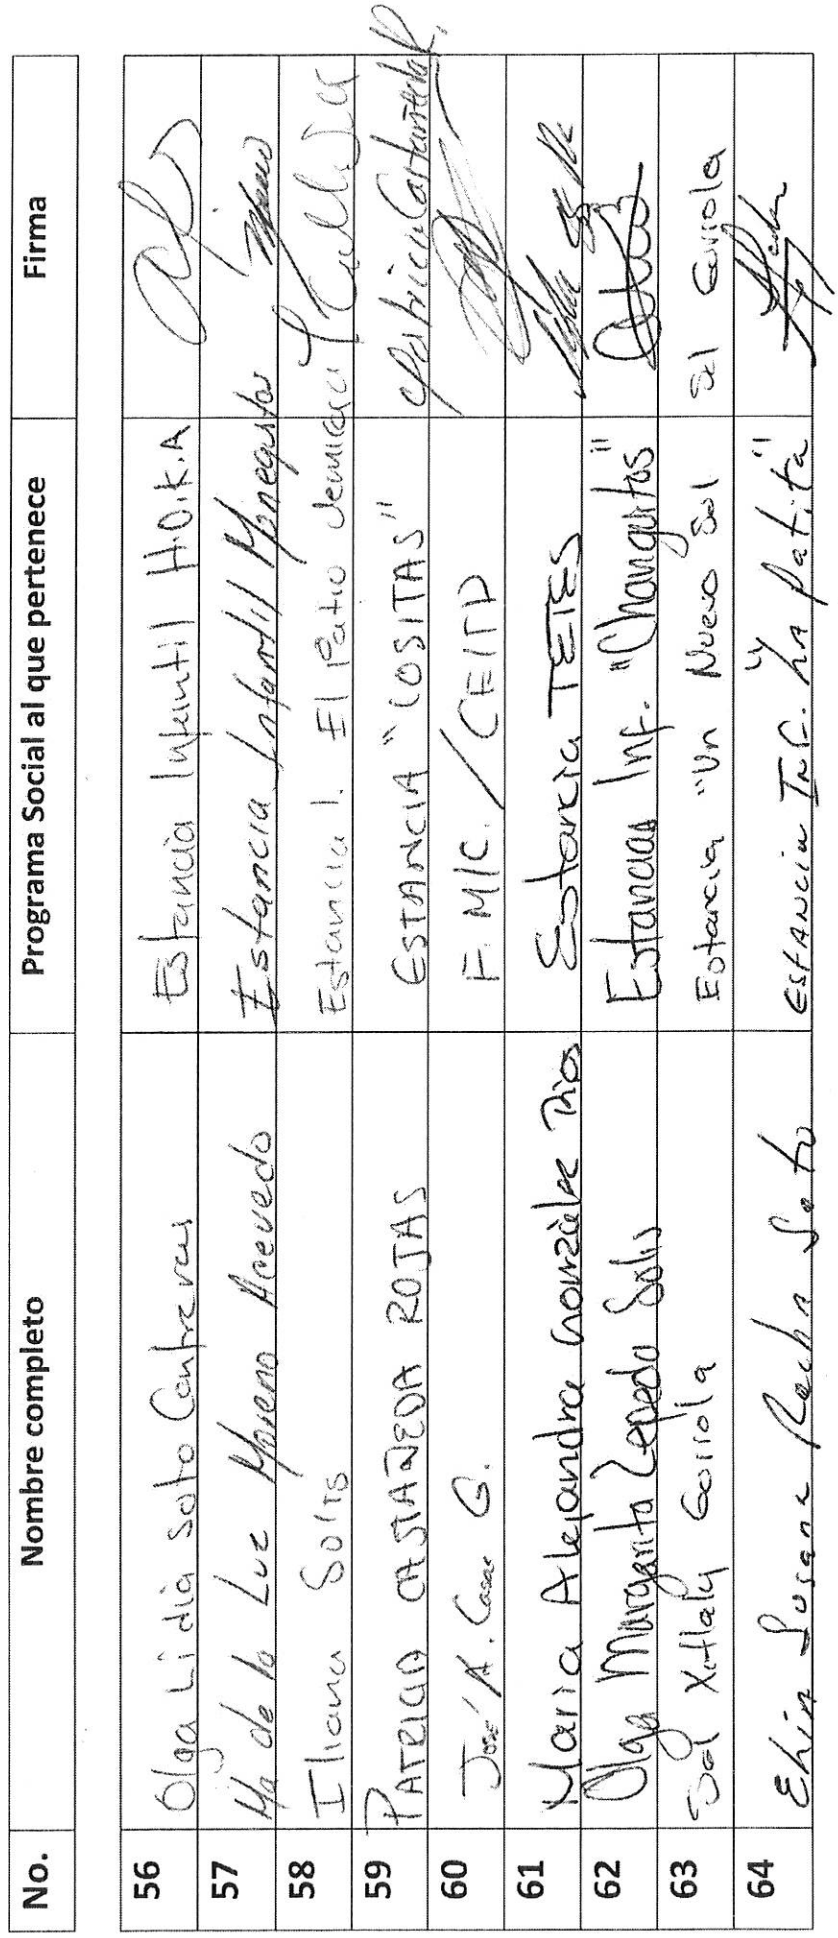 No. Nombre completo Programa Social al que pertenece Firma
56 Olga Lidia Soto Contreras Estancia Infantil H.O.K.A
57 Ma de la Luz Moreno Acevedo Estancia Infantil
58 Iliana Solis Estancia I. El Patio
59 PATRICIA CASTAÑEDA ROJAS ESTANCIA "COSITAS" Patricia Castañeda R.
60 José A. G. F. M/C. / CEITD
61 Maria Alejandra González Rios Estancia TETES
62 Olga Margarita Zepeda Solis Estancias Inf. "Changuitos"
63 Sol Xitlaly Estancia "Un Nuevo Sol Sol
64 Susana Rocha Soto ESTANCIA INF. "La Patita"